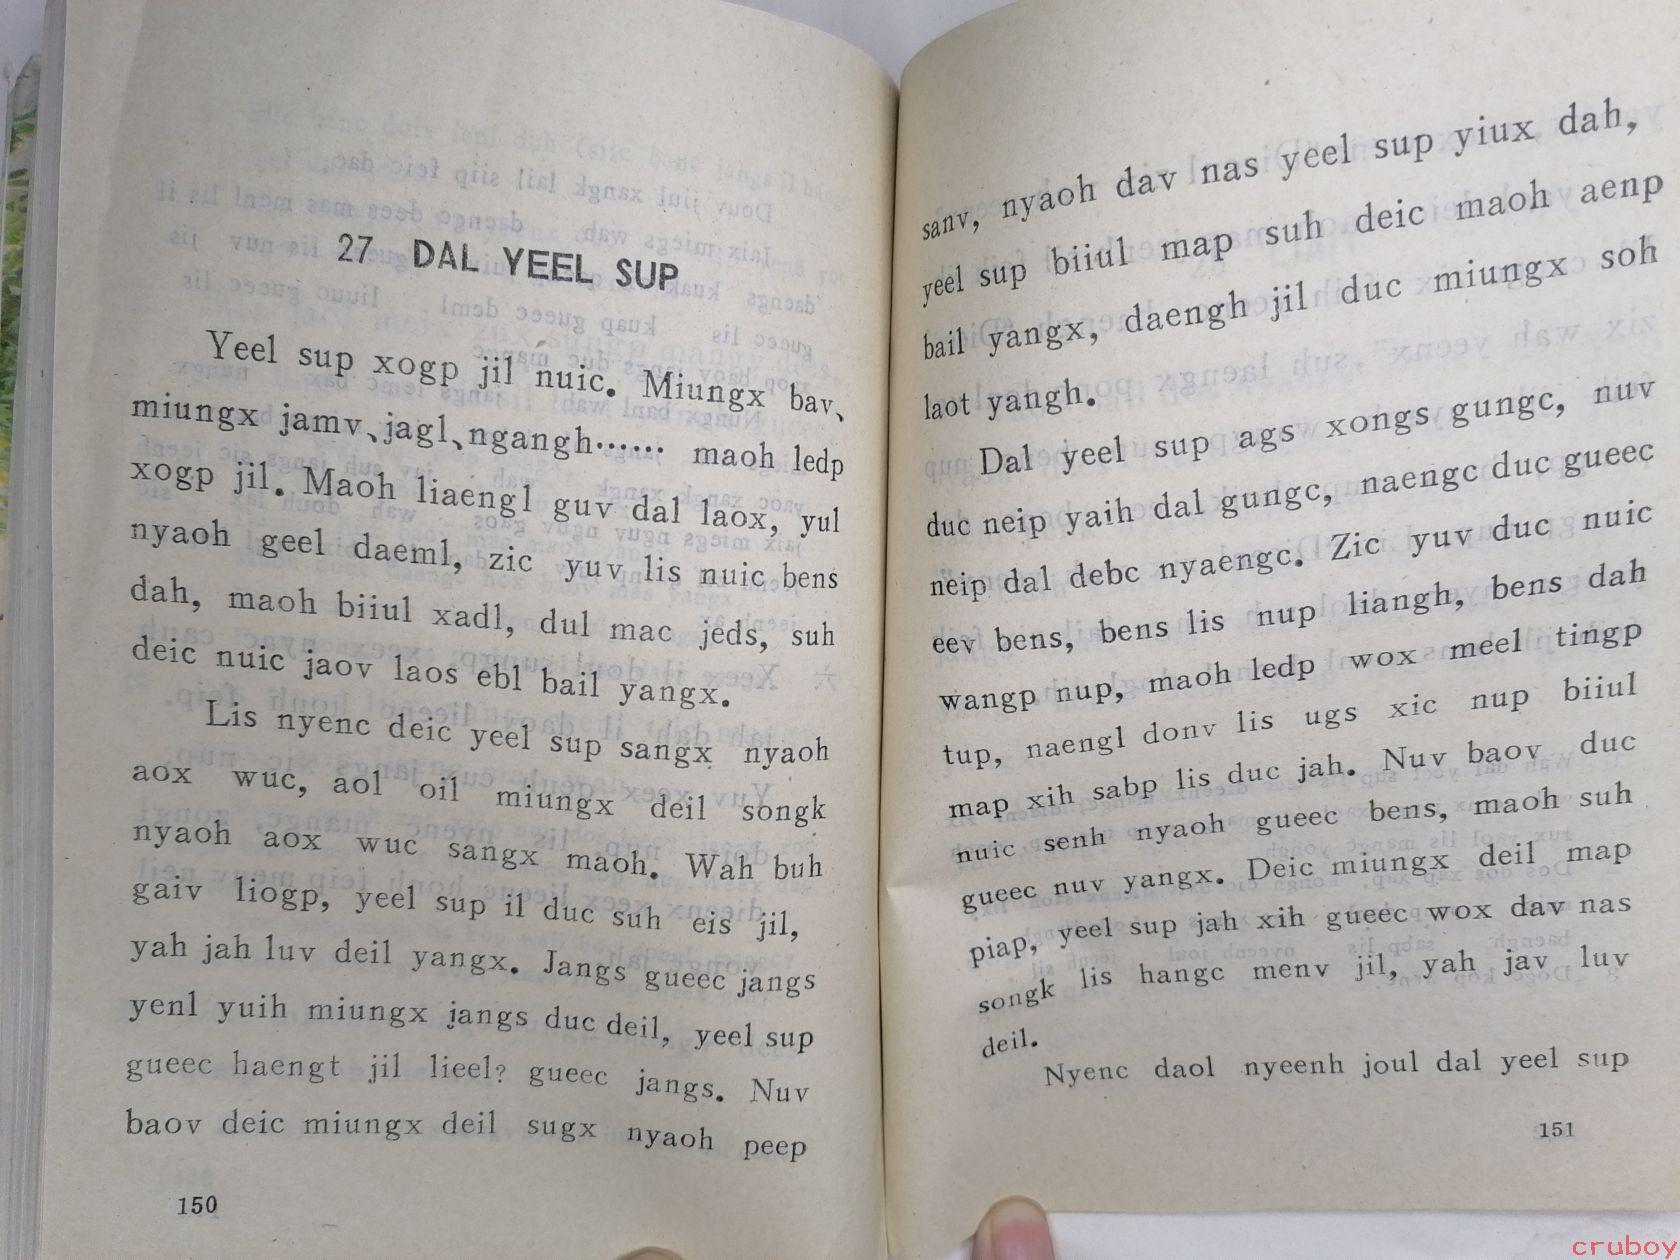 27 DAL YEEL SUP
Yeel sup xogp jil nuic. Miungx bav、
miungx jamv、jagl、ngangh…… maoh ledp
xogp jil. Maoh liaengl guv dal laox, yul
nyaoh geel daeml, zic yuv lis nuic bens
dah, maoh biiul xadl, dul mac jeds, suh
deic nuic jaov laos ebl bail yangx.
Lis nyenc deic yeel sup sangx nyaoh
aox wuc, aol oil miungx deil songk
nyaoh aox wuc sangx maoh. Wah buh
gaiv liogp, yeel sup il duc suh eis jil,
yah jah luv deil yangx. Jangs gueec jangs
yenl yuih miungx jangs duc deil, yeel sup
gueec haengt jil lieel? gueec jangs. Nuv
baov deic miungx deil sugx nyaoh peep
150
sanv, nyaoh dav nas yeel sup yiux dah,
yeel sup biiul map suh deic maoh aenp
bail yangx, daengh jil duc miungx soh
laot yangh.
Dal yeel sup ags xongs gungc, nuv
duc neip yaih dal gungc, naengc duc gueec
neip dal debc nyaengc. Zic yuv duc nuic
eev bens, bens lis nup liangh, bens dah
wangp nup, maoh ledp wox meel tingp
tup, naengl donv lis ugs xic nup biiul
map xih sabp lis duc jah. Nuv baov duc
nuic senh nyaoh gueec bens, maoh suh
gueec nuv yangx. Deic miungx deil map
piap, yeel sup jah xih gueec wox dav nas
songk lis hangc menv jil, yah jav luv
deil.
Nyenc daol nyeenh joul dal yeel sup
151
cruboy